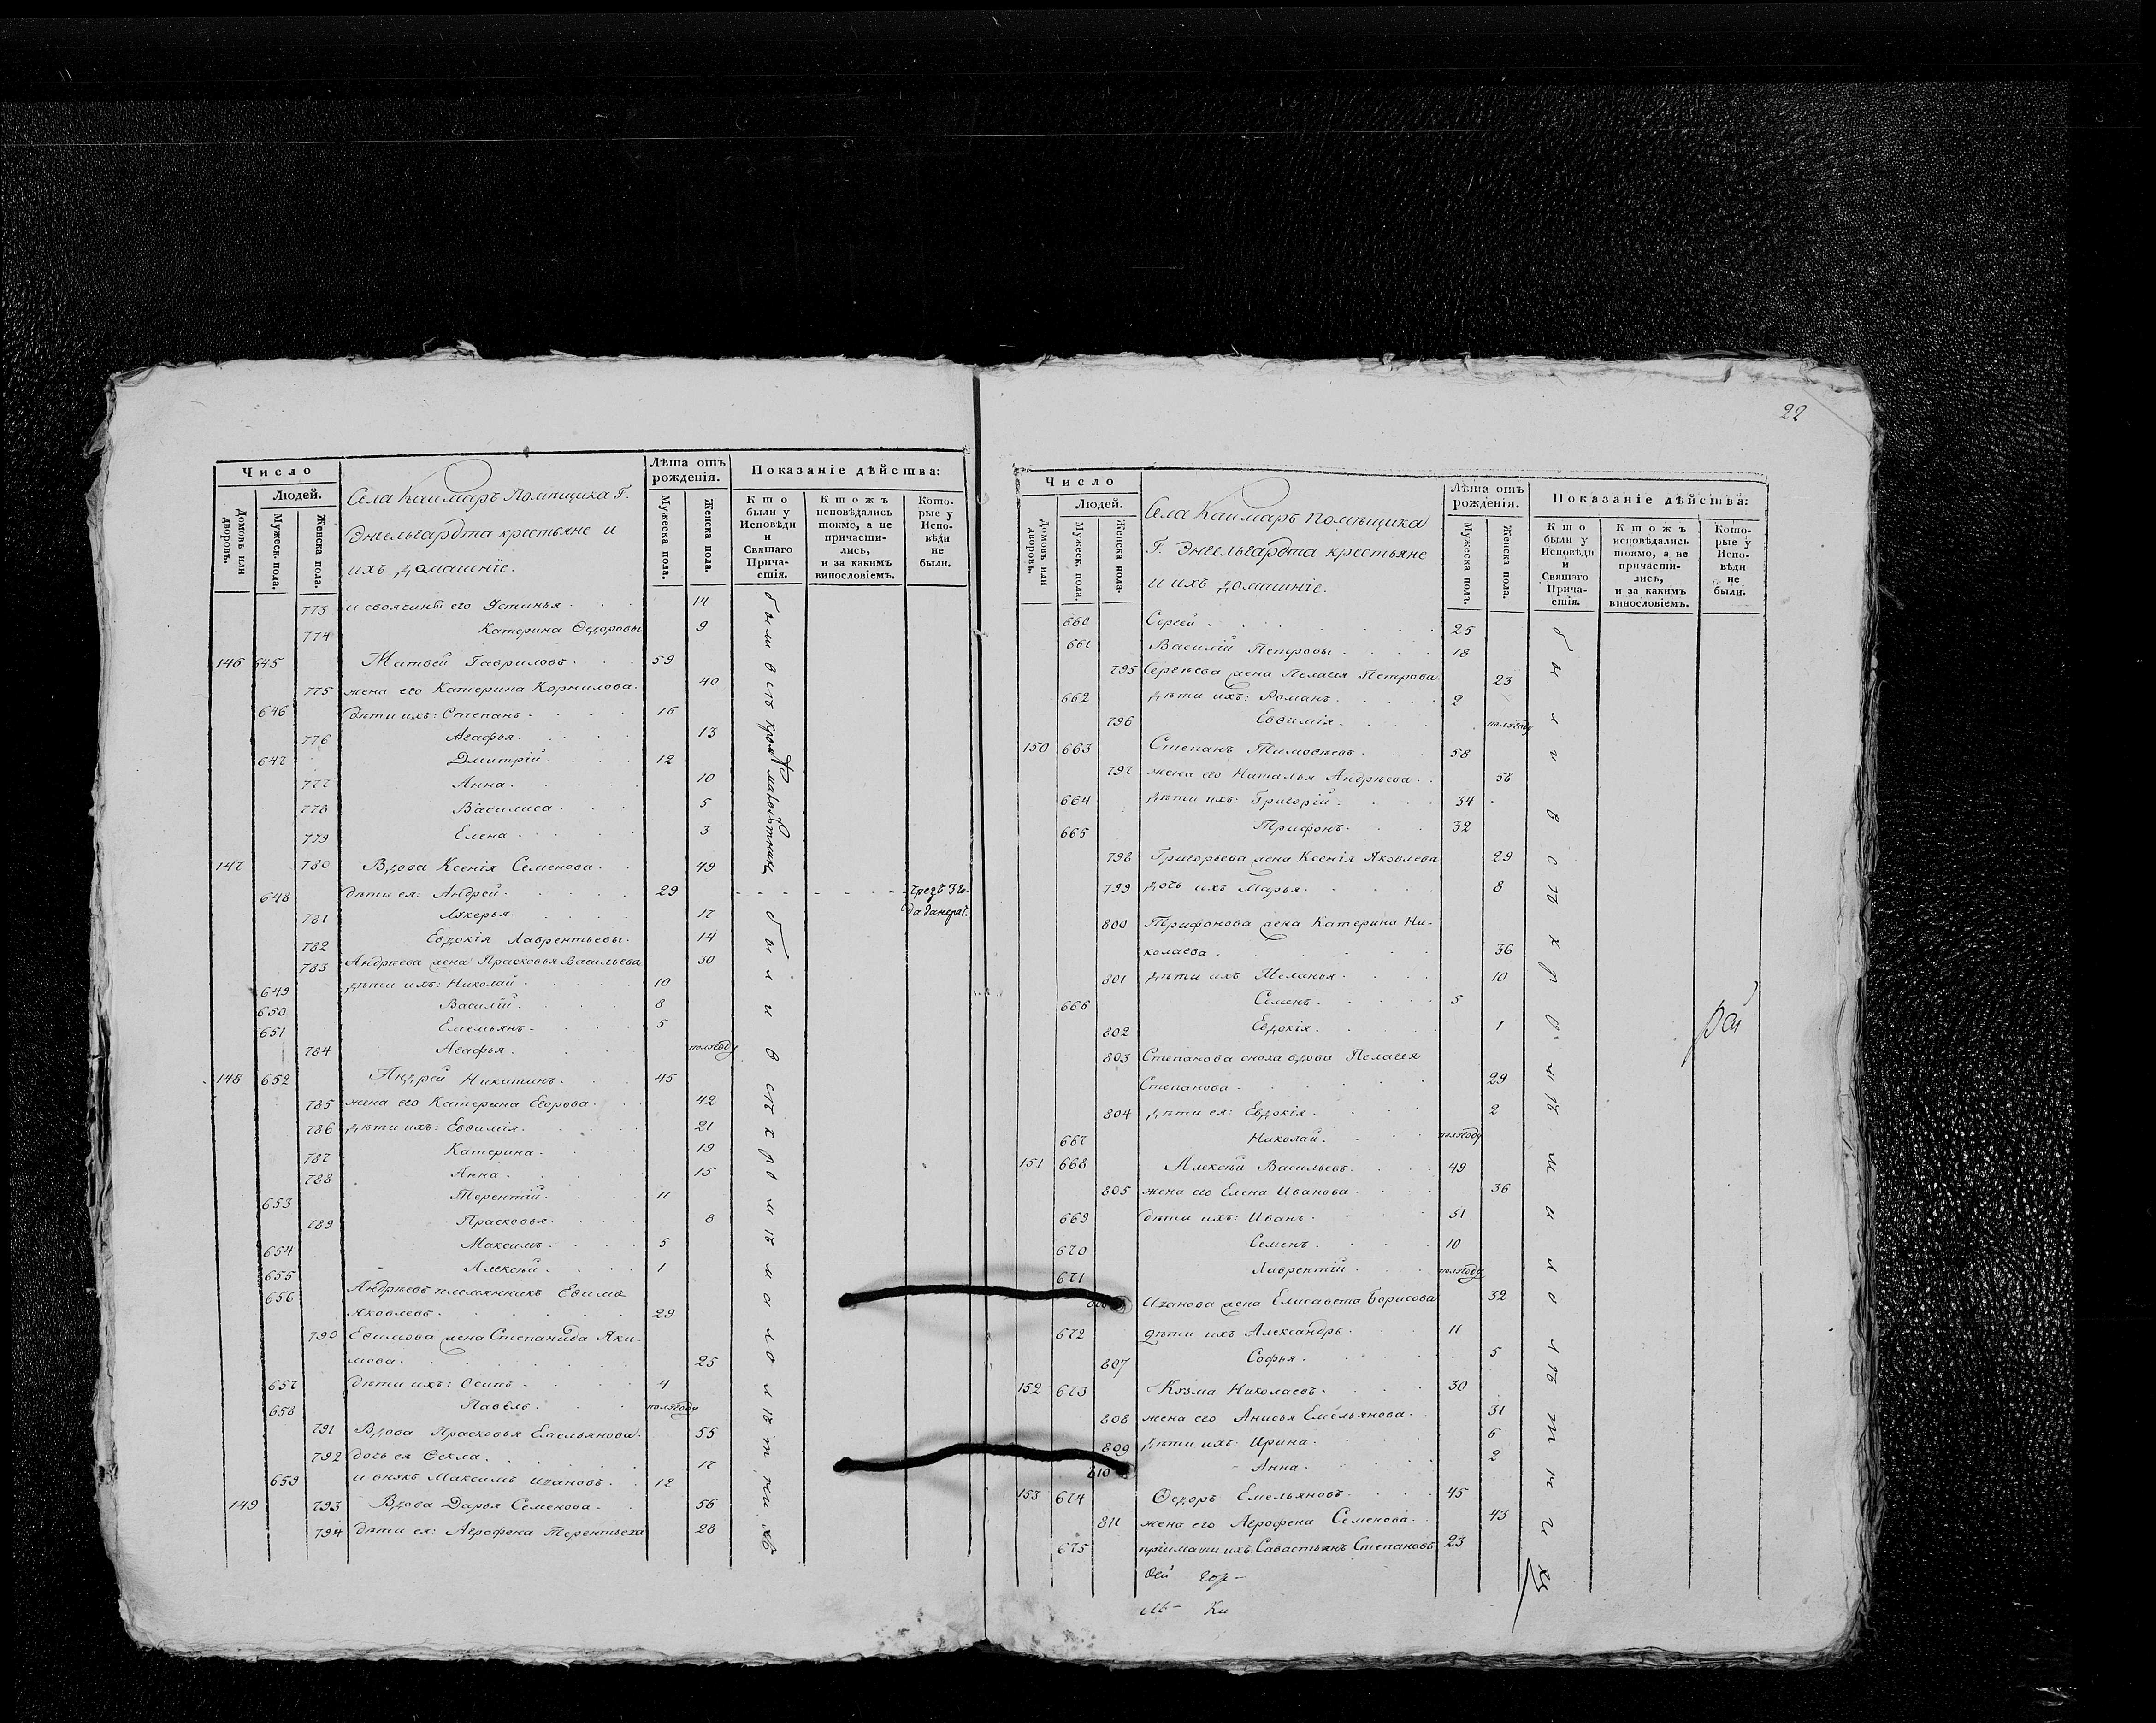 22
Число
Людей.
Домовъ или дворовъ.
Мужеск. пола.
Женска пола.
Села Каимаръ Помѣщика Г.
Энгельгардта крестьяне и
ихъ домашніе.
Лѣта отъ рожденія.
Мужеска пола.
Женска пола.
Показаніе дѣйства:
Кто были у Исповѣди и Святаго Причастія.
Ктожъ исповѣдались токмо, а не причастились, и за какимъ винословіемъ.
Которые у Исповѣди не были.
773 и свояченыи его Устинья 14
774 Катерина Ѳедоровы 9
146 645 Матвей Гавриловъ 59
775 жена его Катерина Корнилова 40
646 дѣти ихъ: Степанъ 16
776 Агафья 13
647 Дмитрій 12
777 Анна 10
778 Василиса 5
779 Елена 3
были в сѣ кромѣ малолѣтних
147 780 Вдова Ксенія Семенова 49
648 дѣти ея: Андрей 29
781 Лукерья 17
782 Евдокія Лаврентьевы 14
783 Андрѣева жена Прасковья Васильева 30
649 дѣти ихъ: Николай 10
650 Василій 8
651 Емельянъ 5
784 Агафья полгоду
148 652 Андрей Никитинъ 45
785 жена его Катерина Егорова 42
786 дѣти ихъ: Евѳимія 21
787 Катерина 19
788 Анна 15
653 Терентій 11
789 Прасковья 8
654 Максимъ 5
655 Алексѣй 1
656 Андрѣевъ племянникъ Ефимъ
Яковлевъ 29
790 Ефимова жена Степанида Яки-
мова 25
657 дѣти ихъ: Осипъ 4
658 Павелъ полгоду
791 Вдова Прасковья Емельянова 55
792 дочь ея Ѳекла 17
659 и внукъ Максимъ Ивановъ 12
149 793 Вдова Дарья Семенова 56
794 дѣти ея: Аграфена Терентьева 28
были в сѣ кромѣ малолѣтних
Число
Людей.
Домовъ или дворовъ.
Мужеск. пола.
Женска пола.
Села Каимаръ помѣщика
Г. Энгельгардта крестьяне
и ихъ домашніе.
Лѣта отъ рожденія.
Мужеска пола.
Женска пола.
Показаніе дѣйства:
Кто были у Исповѣди и Святаго Причастія.
Ктожъ исповѣдались токмо, а не причастились, и за какимъ винословіемъ.
Которые у Исповѣди не были.
660 Сергей 25
661 Василій Петровы 18
795 Сергѣева жена Пелагея Петрова 23
662 дѣти ихъ: Романъ 2
796 Евѳимія полгоду
150 663 Степанъ Тимоѳеевъ 58
797 жена его Наталья Андрѣева 58
664 дѣти ихъ: Григорій 34
665 Трифонъ 32
798 Григорьева жена Ксенія Яковлева 29
799 дочь ихъ Марья 8
800 Трифонова жена Катерина Ни-
колаева 36
801 дѣти ихъ Меланья 10
666 Семенъ 5
802 Евдокія 1
803 Степанова сноха вдова Пелагея
Степанова 29
804 дѣти ея: Евдокія 2
667 Николай полгоду
151 668 Алексѣй Васильевъ 49
805 жена его Елена Иванова 36
669 дѣти ихъ: Иванъ 31
670 Семенъ 10
671 Лаврентій полгоду
Иванова жена Елисавета Борисова 32
672 дѣти ихъ Александръ 11
807 Софья 5
152 673 Кузма Николаевъ 30
808 жена его Анисья Емельянова 31
809 дѣти ихъ: Ирина 6
810 Анна 2
153 674 Ѳедоръ Емельяновъ 45
811 жена его Аграфена Семенова 43
675 пріимышъ ихъ Савастьянъ Степановъ 23
были в сѣ кромѣ малолѣтних